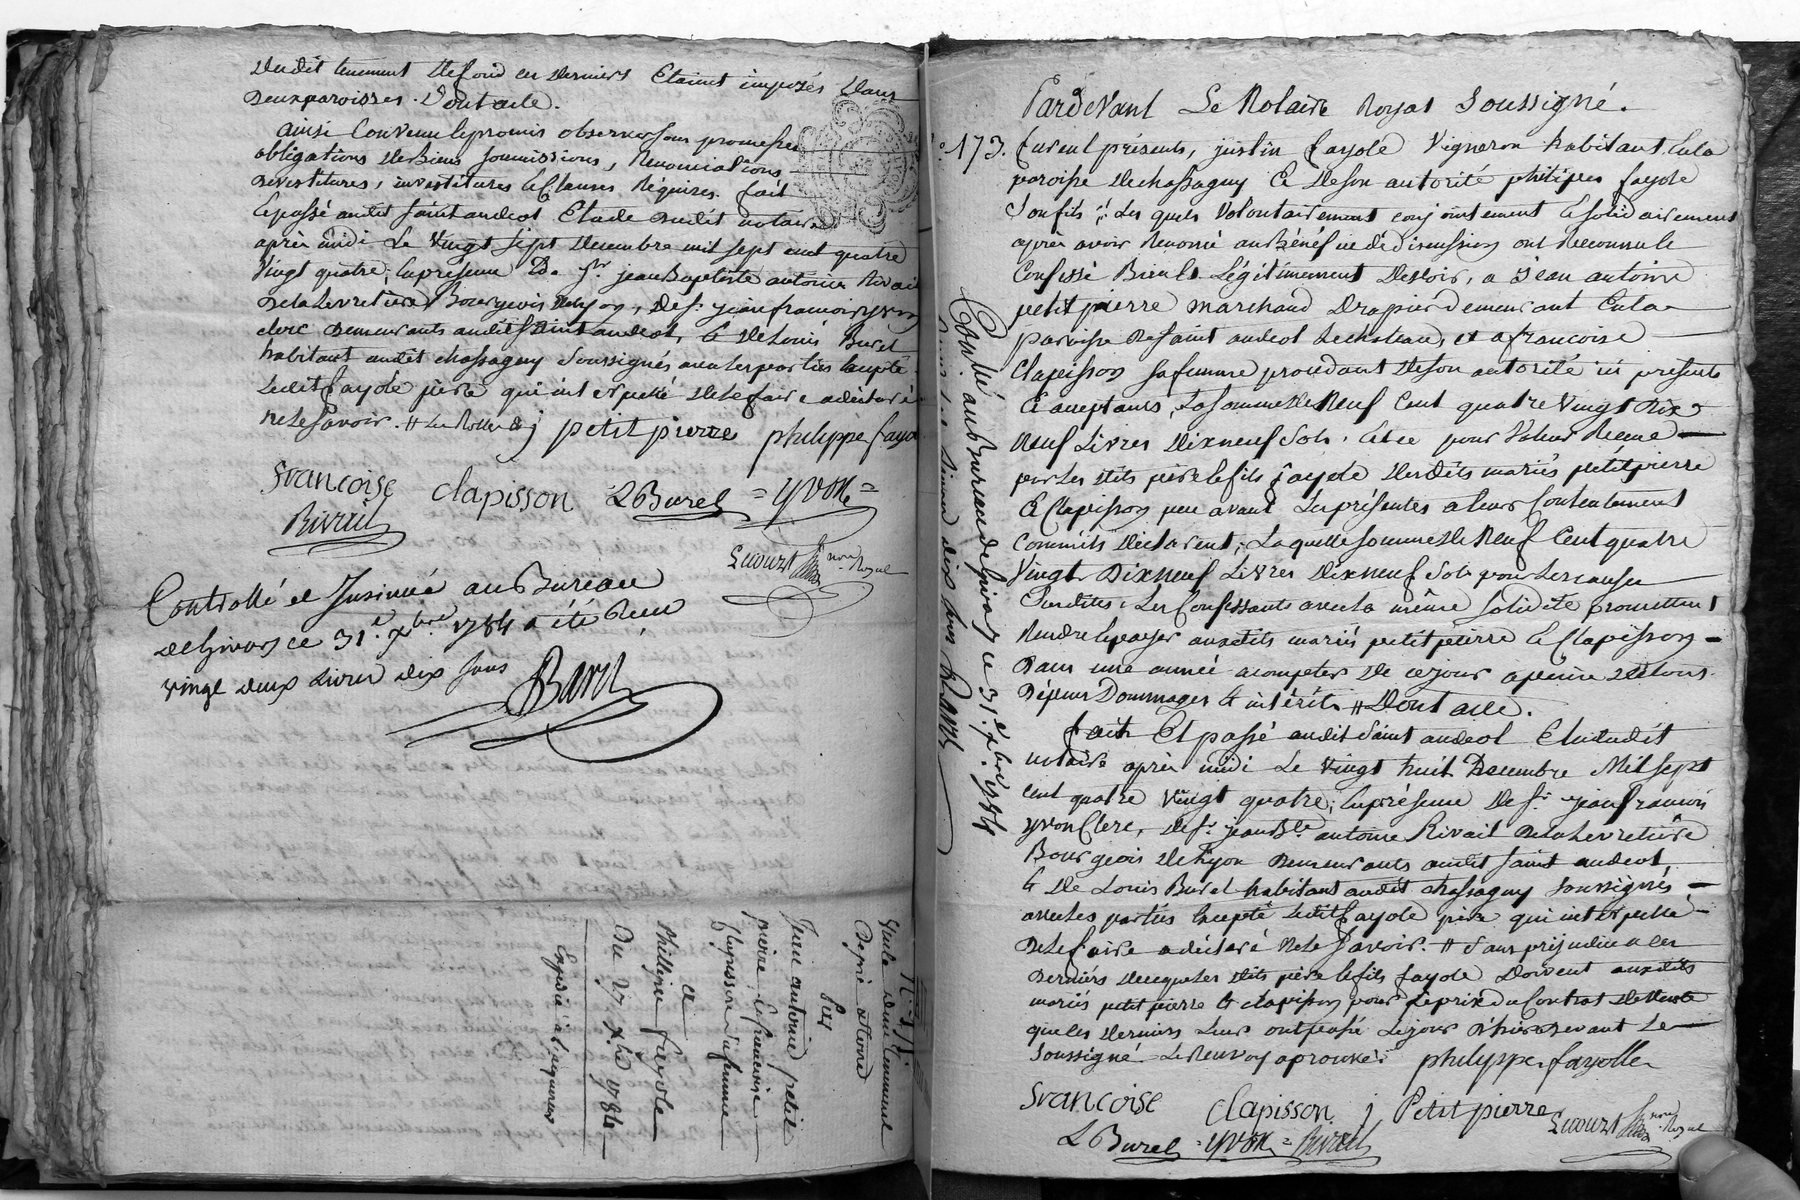 dudit tenement de fond ces derniers Etaient imposés dans
deux paroisses. Dont acte.
ainsi Convenu & promis observer sous promesses
obligations de Biens soumissions, Renonciations
devestitures, investitures & Clauses Requises. fait
& passé audit saint andeol Etude dudit notaire
après midi Le Vingt sept Decembre mil sept cent quatre
Vingt quatre; En presence De Sr. jean Baptiste antoine Rivail
De la Levretière Bourgeois de Lyon, de Sr. jean francois yvon
clerc demeurants audit Saint andeol, & de Louis Burel
habitant audit chassagny Soussignés avec les parties Excepté
Ledit fayole père qui interpellé de le faire a déclaré
ne le Savoir.
j petit pierre philippe fayo
francoise Clapisson L Burel = yvon =
Rivail
Lecourt nore. Royal
Controllé et Insinué au Bureau
de Givors ce 31e. xbre 1784 a été Reçu
vingt deux Livres dix sous Barel
Vente d'un tenement
De pré et terre
Par
Jean antoine petit
pierre & francoise
Clapisson sa femme
a
Philippe fayole
Du 27 xbre 1784
Expédié à l'acquereur
Pardevant Le Notaire Royal Soussigné.
173. furent présents, justin fayole Vigneron habitant En la
paroisse de chassagny & de son autorité philipes fayole
Son fils; Les quels Volontairement conjointement & solidairement
après avoir Renoncé au Bénéfice de discussion ont Reconnu &
Confessé Bien & Légitimement devoir, a Jean antoine
petit pierre marchand Drapier demeurant En la
paroisse de saint andeol Le chateau, et a francoise
Clapisson sa femme procedant de son autorité ici presents
& acceptants, La somme de Neuf Cent quatre Vingt Dix
Neuf Livres Dix neuf Sols, et ce pour Valeur Reçue
par Les dits père & fils fayole desdits mariés petit pierre
& Clapisson peu avant Les présentes a leur Contentement
comm'ils déclarent; La quelle somme de Neuf Cent quatre
Vingt Dix neuf Livres Dix neuf Sols pour Les causes
Susdites, Les Confessants avec la même solidité promettent
Rendre & payer auxdits mariés petit pierre & Clapisson
Dans une année a compter de ce jour a peine de tous
Dépens Dommages & intérêts # Dont acte.
fait Et passé audit Saint andeol Etude dudit
notaire après midi Le Vingt huit Decembre Mil Sept
cent quatre Vingt quatre; En présence de Sr. jean francois
yvon Clerc, de Sr. jean Bte antoine Rivail De la Levretière
Bourgeois de Lyon demeurants audit Saint andeol,
& de Louis Burel habitant audit chassagny Soussignés
avec Les parties Excepté Ledit fayole père qui interpellé
de le faire a déclaré ne le Savoir. # Sans prejudice a ces
derniers de ce que Les dits père & fils fayole doivent auxdits
mariés petit pierre & clapisson pour Le prix du Contrat de Vente
que ces derniers Leur ont passé Le jour d'hier devant Le
Soussigné Le Renvoy aprouvé. philippe fayolle
francoise Clapisson j Petit pierre
L Burel = yvon = Rivail Lecourt nore. Royal
Contr.lé au Bureau de Givors ce 31e. xbre 1784